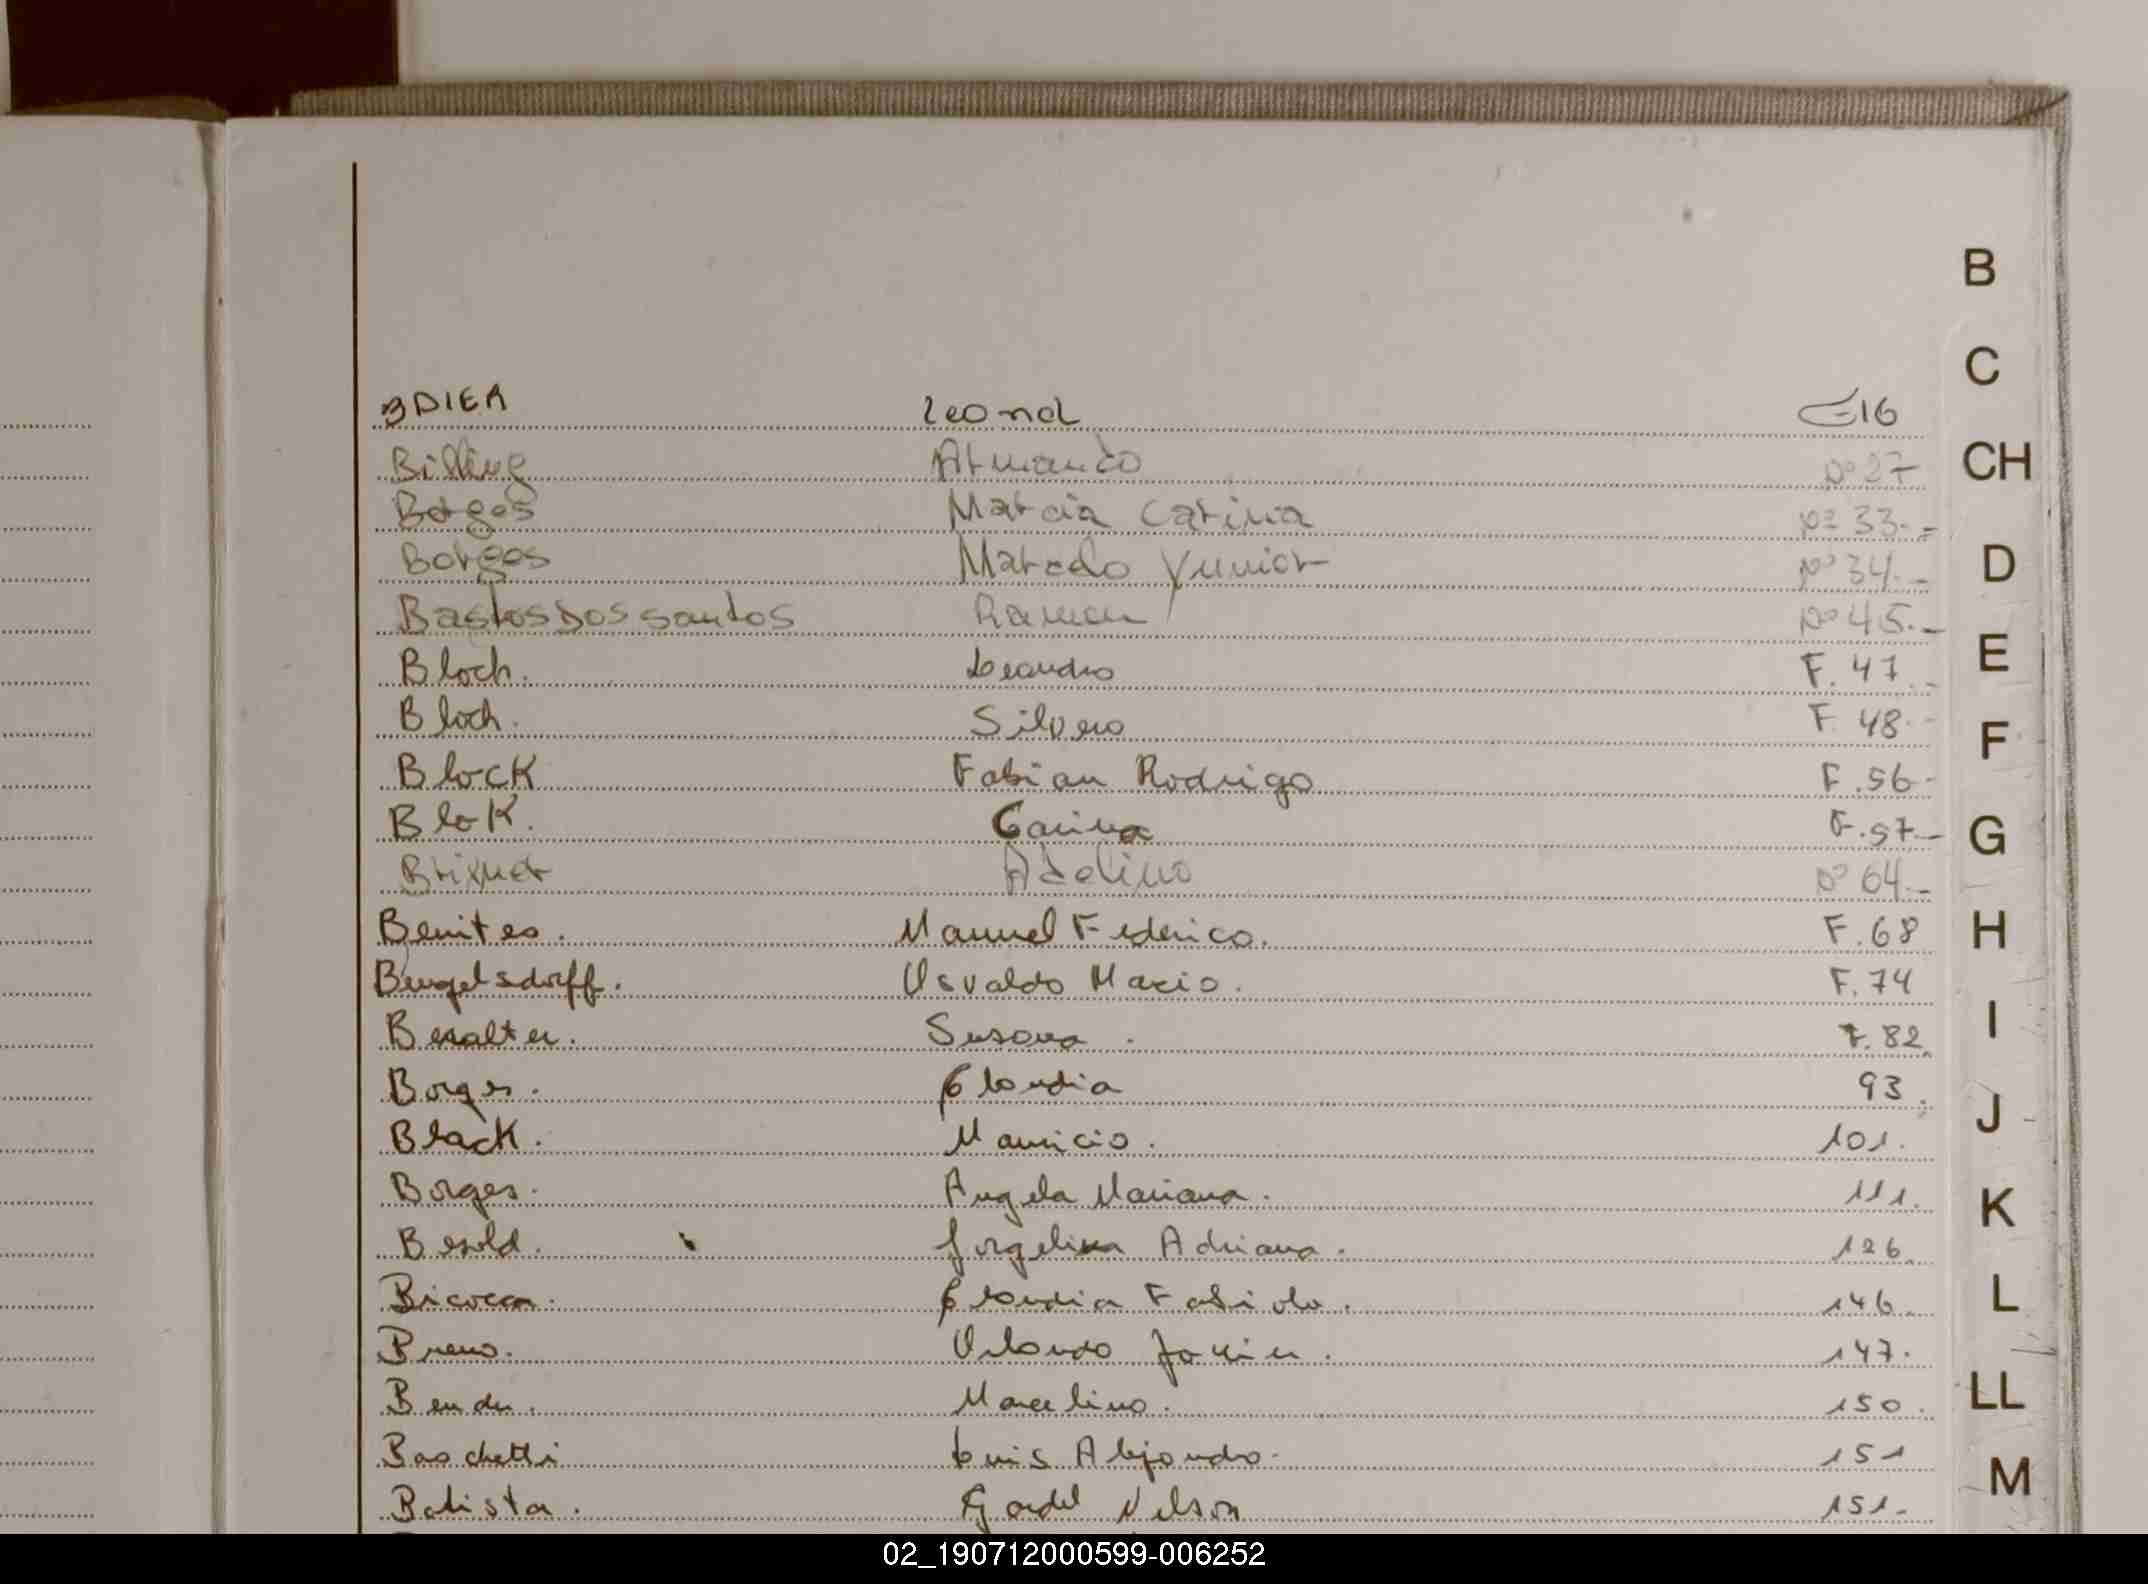 B
C
BDIER Leonel 16
Billing Armando Nº 27
CH
Borges Marcia Carina Nº 33.-
Borges Marcelo Yunior Nº 34.-
D
Bastos Dos santos Ramon Nº 45.-
E
Bloch. Leandro F. 47.-
Bloch. Silverio F. 48.-
F
Block Fabian Rodrigo F. 56-
Blok. Carina F. 57-
G
Brixner Adelino Nº 64.-
Benites. Manuel Federico. F. 68
H
Bengelsdorff. Osvaldo Mario. F. 74
I
Susana. F. 82.
Borges. Claudia 93.
J
Black. Mauricio. 101.
Borges. Angela Mariana. 111.
K
Besold. Jorgelina Adriana. 126.
L
Bicocca. Claudia Fabiola. 146.
Orlando Javier. 147.
LL
Marcelino. 150.
Baschetti Luis Alejandro. 151
M
Batista. Gardel Nelson 151.
02_190712000599-006252